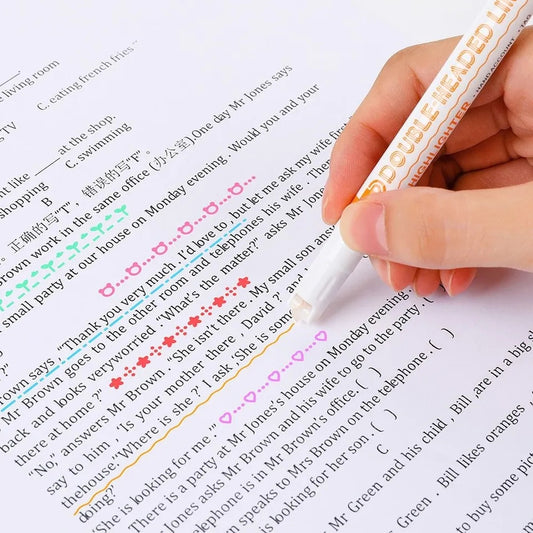 living room
C. eating french fries
TV
at the shop.
nt like
shopping
C. swimming
B
正确的写"T"，错误的写"F"。
rown work in the same office (办公室).One day Mr Jones says
small party at our house on Monday evening. Would you and your
rown says , "Thank you very much, I'd love to, but let me ask my wife first
Mr Brown goes to the other room and telephones his wife . The
back and looks veryworried ."What's the matter?" asks Mr Jon
there at home ?"
"No," answers Mr Brown . "She isn't there . My small son ans
say to him , 'Is your mother there , David ?' and
thehouse."Where is she ?' I ask .'She is som
doing?'
"She is looking for me."
There is a party at Mr Jones's house on Monday evening
Jones asks Mr Brown and his wife to go to the party. ( )
telephone is in Mr Brown's office. ( )
n speaks to Mrs Brown on the telephone. ( )
is looking for her son . ( )
C
Mr Green and his child , Bill , are in a big s
. Bill likes oranges ,
to buy some pic
DOUBLE-HEADED LIN
HIGHLIGHTER
HAND ACCOUNT